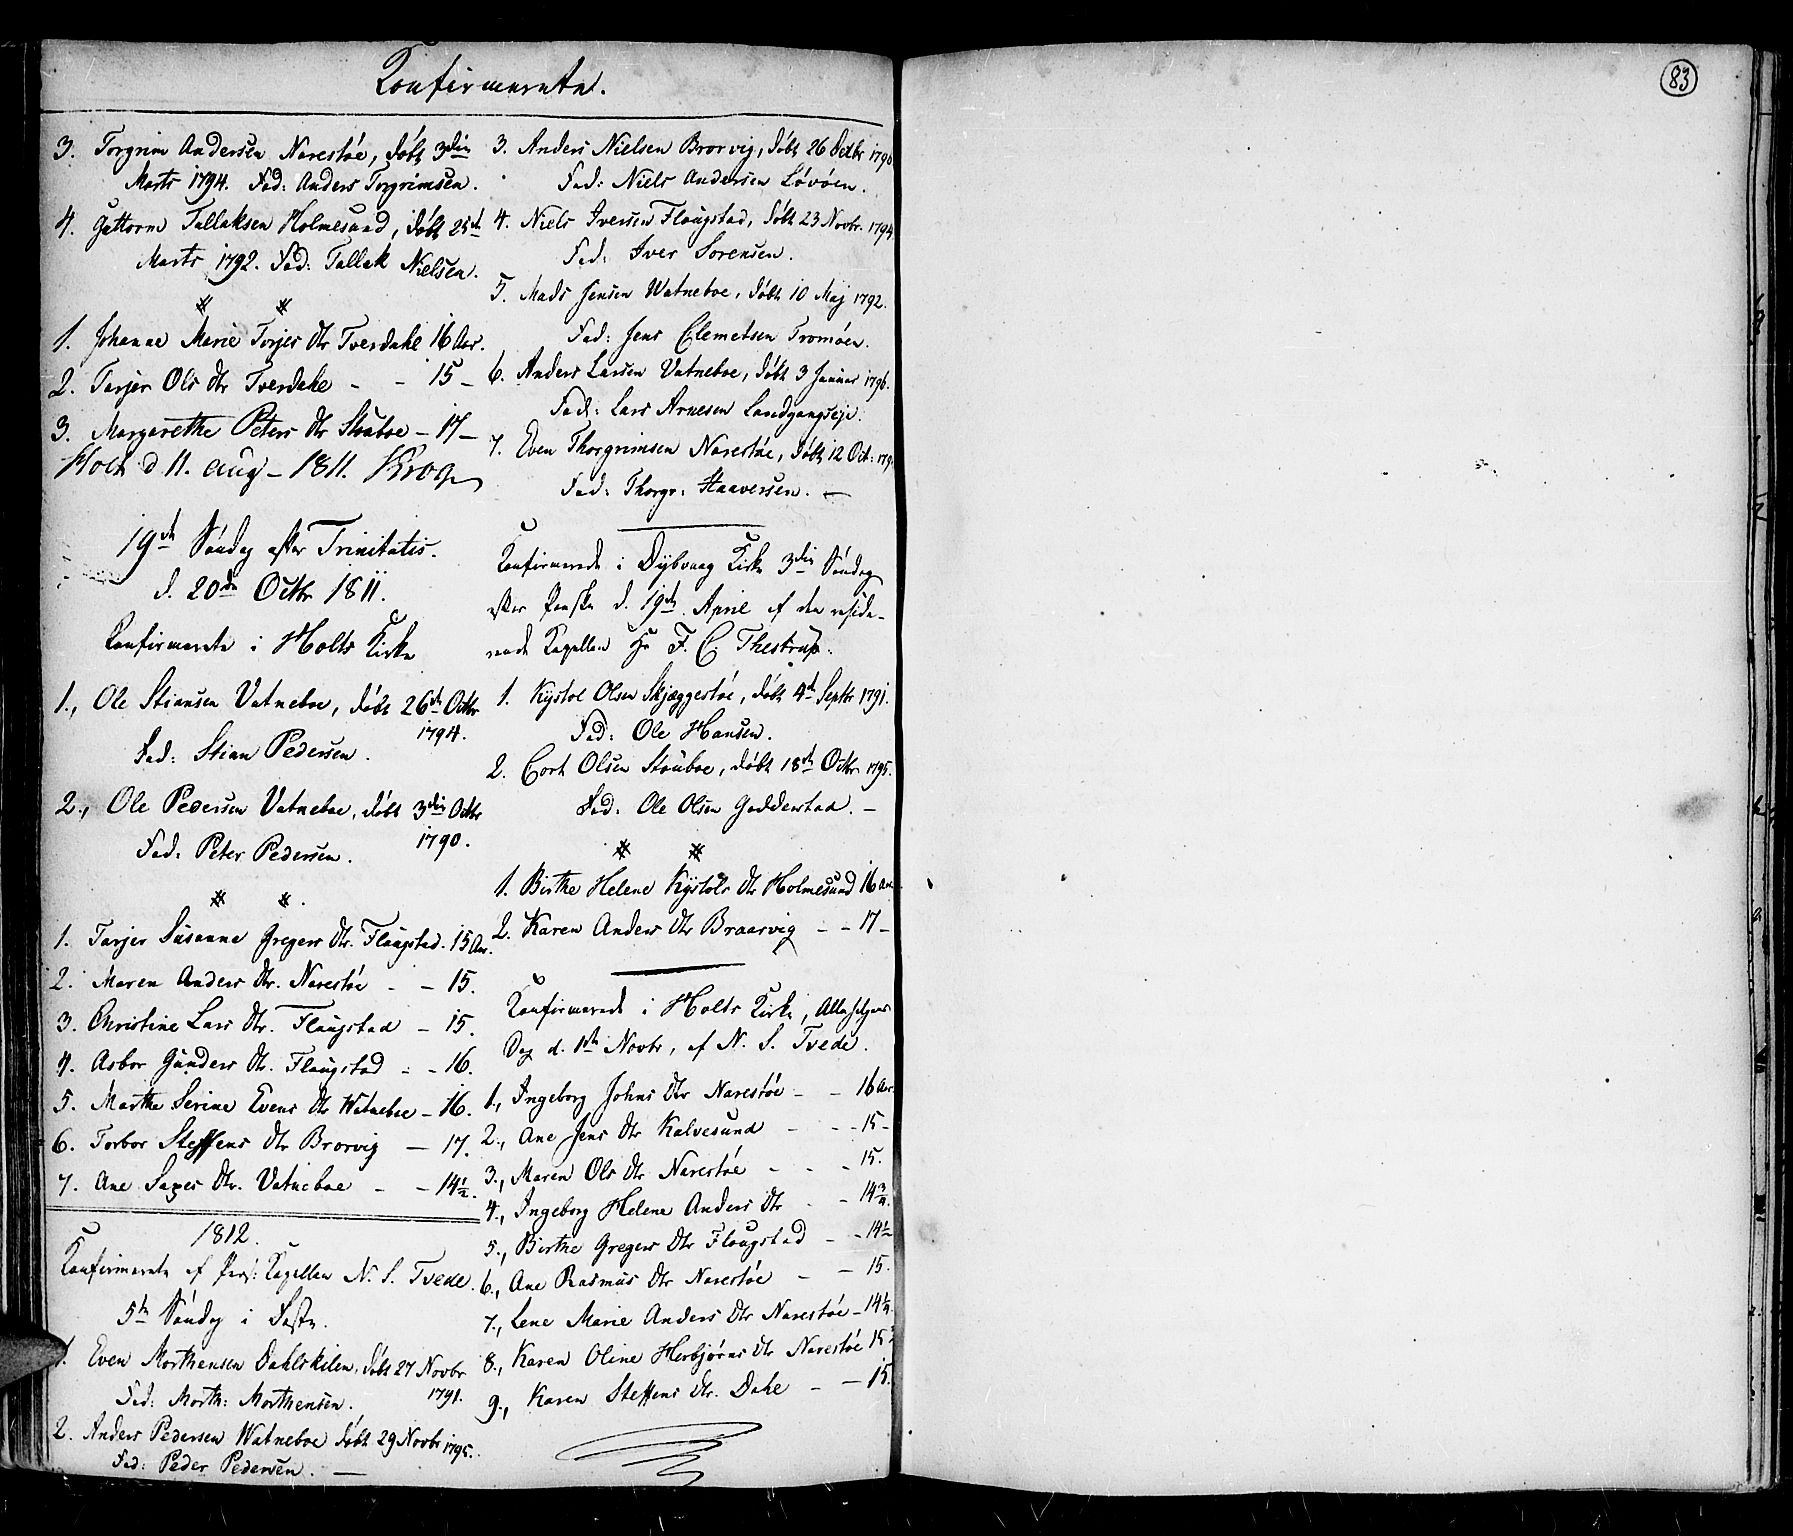 Konfirmerete.
3. Torgrim Andersen Narestøe, døbt 3die
Marts 1794. Fad: Anders Torgrimsen.
4. Guttorm Tallaksen Holmesund, døbt 25de
Marts 1792. Fad: Tallak Nielsen.
1. Johanne Marie Torjes Dtr Tverdahl 16 Aar.
2. Tarjer Ols Dtr Tverdahl - - 15 -
3. Margarethe Peters Dtr Stubøe - 17 -
Holt d 11. Aug - 1811. Krog
19de Søndag efter Trinitatis.
d. 20de Octbr 1811.
Konfirmerete i Holts Kirke
1., Ole Stiansen Vatneboe, døbt 26de Octbr
1794.
Fad: Stian Pedersen.
2., Ole Pedersen Vatneboe, døbt 3die Octbr
1790.
Fad: Peter Pedersen.
1. Tarjer Susanne Gregers Dtr. Flaugstad. 15 Aar.
2. Maren Anders Dtr. Narestøe - - 15.
3. Christine Lars Dtr. Flaugstad - 15.
4. Asbor Gunders Dtr. Flaugstad - - 16.
5. Marthe Serine Evens Dtr Watneboe - 16.
6. Torbor Steffens Dtr Brorvig - 17.
7. Ane Saxes Dtr. Vatneboe - - 14½.
1812.
Konfirmerete af Pers: Kapellan N. S. Tvede.
5te Søndag i Faste.
1. Even Morthensen Dahlskilen, døbt 27 Novbr
1791.
Fad: Morth: Morthensen.
2. Anders Pedersen Watneboe døbt 29 Novbr 1795.
Fad: Peder Pedersen. -
3. Anders Nielsen Brorvig, døbt 26 Decbr 1790
Fad: Niels Andersen Løvøen.
4. Niels Iversen Flaugstad, døbt 23 Novbr. 1794
Fad: Iver Sørensen.
5. Mads Jensen Watneboe, døbt 10 Maj 1792.
Fad: Jens Clemetsen Tromøen.
6. Anders Larsen Vatneboe, døbt 3 Januar 1796.
Fad: Lars Arnesen Landgangseje.
7. Even Thorgrimsen Narestøe, døbt 12 Oct: 179
Fad: Thorgr: Haaversen. -
Konfirmerede i Dybvaag Kirke 3die Søndag
efter Paaske d. 19de April af den reside-
rende Kapellan Hr F. C. Thestrup.
1. Kystol Olsen Skjæggestøe, døbt 4de Septbr 1791.
Fad: Ole Hansen.
2. Cort Olsen Stauboe, døbt 18de Octbr. 1795.
Fad: Ole Olsen Godderstad. -
1. Birthe Helene Kystols Dtr Holmesund 16 Aar
2. Karen Anders Dtr Braarvig - - 17 -
Konfirmerede i Holts Kirke, Allehelgens
Dag d. 1ste Novbr, af N. S. Tvede.
1., Ingeborg Johns Dtr Narestøe - - 16 Aar
2., Ane Jens Dtr Kalvesund - - - 15 -
3., Maren Ols Dtr Narestøe - - - 15.
4., Ingeborg Helene Anders Dtr - 14¾.
5., Birthe Gregers Dtr Flaugstad - - 14½
6., Ane Rasmus Dtr Narestøe - - 15.
7., Lene Marie Anders Dtr Narestøe - 14¼.
8., Karen Oline Herbjørns Dtr Narestøe 15
9., Karen Steffens Dtr. Dahl - - 15.
83